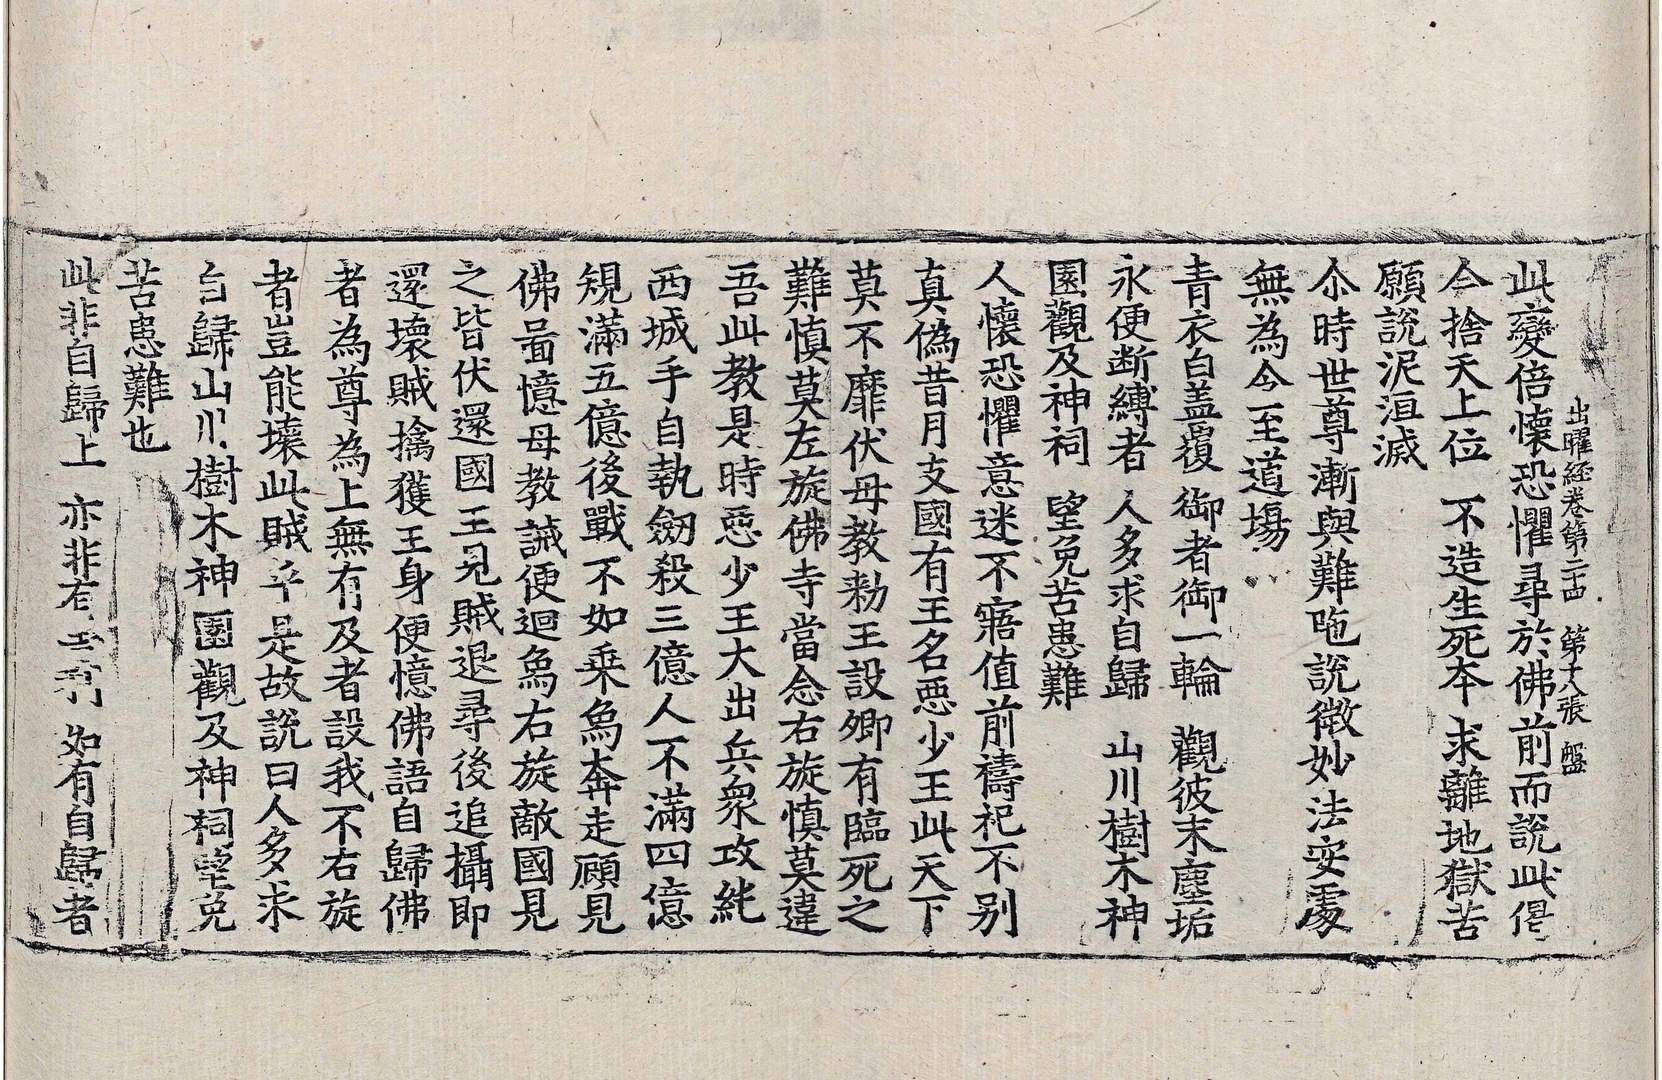 出曜經卷第二十四 第十八張 盤
此變倍懷恐懼尋於佛前而說此偈
今捨天上位 不造生死本 求離地獄苦
願說泥洹滅
尒時世尊漸與難陁說微妙法安處
無為令至道場
青衣白盖覆 御者御一輪 觀彼末塵垢
永便断縛者 人多求自歸 山川樹木神
園觀及神祠 望免苦患難
人懷恐懼意迷不寤值前禱祀不別
真偽昔月支國有王名惡少王此天下
莫不靡伏母教勑王設卿有臨死之
難慎莫左旋佛寺當念右旋慎莫違
吾此教是時惡少王大出兵衆攻純
西城手自執劒殺三億人不滿四億
規滿五億後戰不如乘象奔走顧見
佛啚憶母教誡便迴象右旋敵國見
之皆伏還國王見賊退尋後追攝即
還壞賊擒獲王身便憶佛語自歸佛
者為尊為上無有及者設我不右旋
者豈能壞此賊乎是故說曰人多求
自歸山川樹木神園觀及神祠望免
苦患難也
此非自歸上 亦非有吉利 如有自歸者